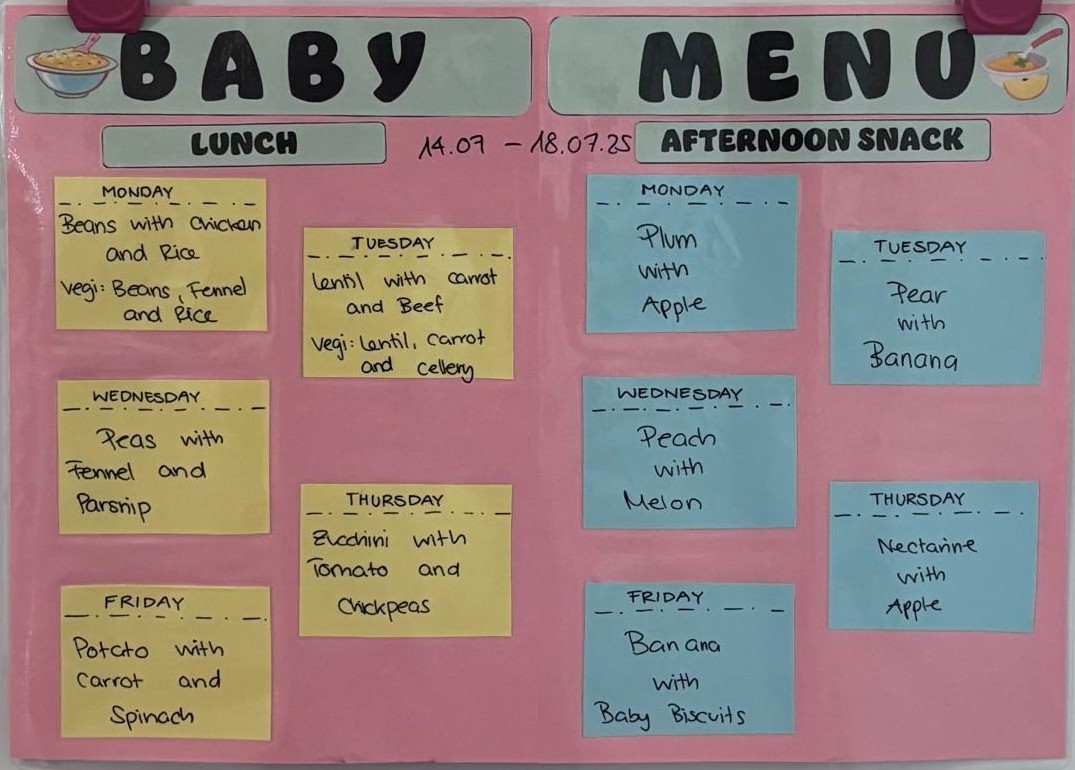 BABY MENU
LUNCH
14.07 - 18.07.25
AFTERNOON SNACK
MONDAY
Beans with Chicken
and Rice
Vegi: Beans, Fennel
and Rice
TUESDAY
Lentil with carrot
and Beef
Vegi: Lentil, Carrot
and cellery
WEDNESDAY
Peas with
Fennel and
Parsnip
THURSDAY
Zucchini with
Tomato and
Chickpeas
FRIDAY
Potato with
Carrot and
Spinach
MONDAY
Plum
with
Apple
TUESDAY
Pear
with
Banana
WEDNESDAY
Peach
with
Melon
THURSDAY
Nectarine
with
Apple
FRIDAY
Banana
with
Baby Biscuits